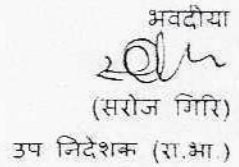 भवदीया
(सरोज गिरि)
उप निदेशक (रा.भा.)